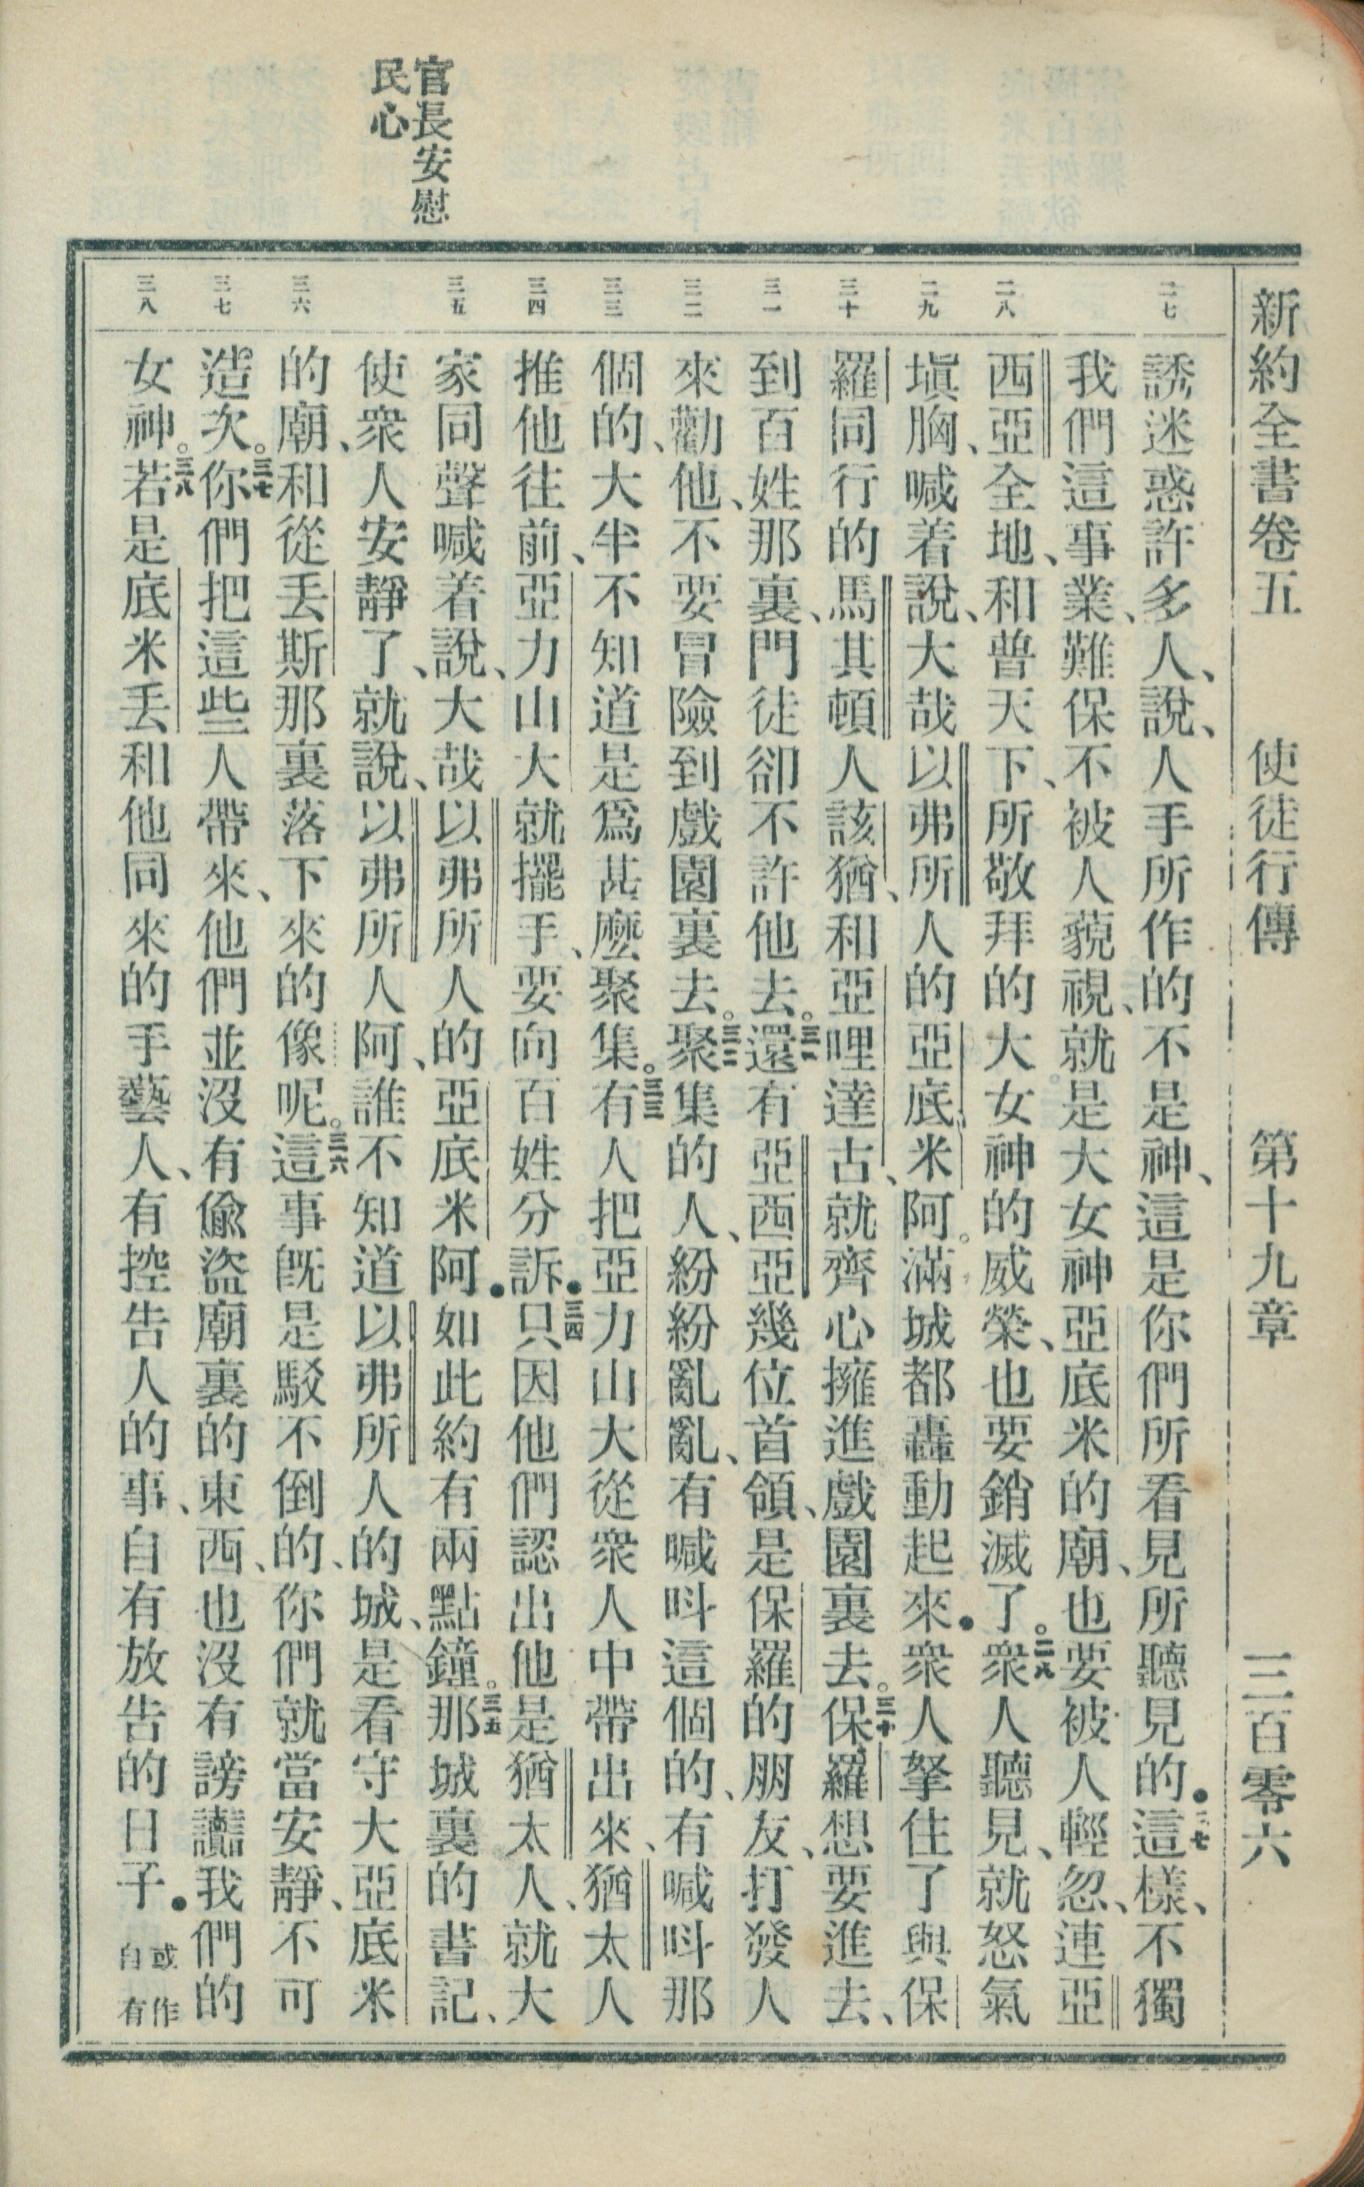 新約全書卷五　使徒行傳　第十九章　三百零六
官長安慰
民心
二七
二八
二九
三十
三一
三二
三三
三四
三五
三六
三七
三八
誘迷惑許多人、說、人手所作的不是神、這是你們所看見所聽見的●二七這樣、不獨
我們這事業、難保不被人藐視、就是大女神亞底米的廟、也要被人輕忽、連亞
西亞全地、和普天下、所敬拜的大女神的威榮、也要銷滅了。二八衆人聽見、就怒氣
塡胸、喊着說、大哉以弗所人的亞底米阿。滿城都轟動起來●衆人拏住了與保
羅同行的馬其頓人該猶、和亞哩達古、就齊心擁進戲園裏去。三十保羅想要進去、
到百姓那裏、門徒卻不許他去。三一還有亞西亞幾位首領、是保羅的朋友、打發人
來勸他、不要冒險到戲園裏去。三二聚集的人、紛紛亂亂、有喊呌這個的、有喊呌那
個的、大半不知道是爲甚麽聚集。三三有人把亞力山大從衆人中帶出來、猶太人
推他往前、亞力山大就擺手、要向百姓分訴●三四只因他們認出他是猶太人、就大
家同聲喊着說、大哉以弗所人的亞底米阿●如此約有兩點鐘。三五那城裏的書記、
使衆人安靜了、就說、以弗所人阿、誰不知道以弗所人的城、是看守大亞底米
的廟、和從丢斯那裏落下來的像呢。三六這事旣是駁不倒的、你們就當安靜、不可
造次。三七你們把這些人帶來、他們並沒有偸盜廟裏的東西、也沒有謗讟我們的
女神。三八若是底米丢和他同來的手藝人、有控告人的事、自有放告的日子●或作
自有